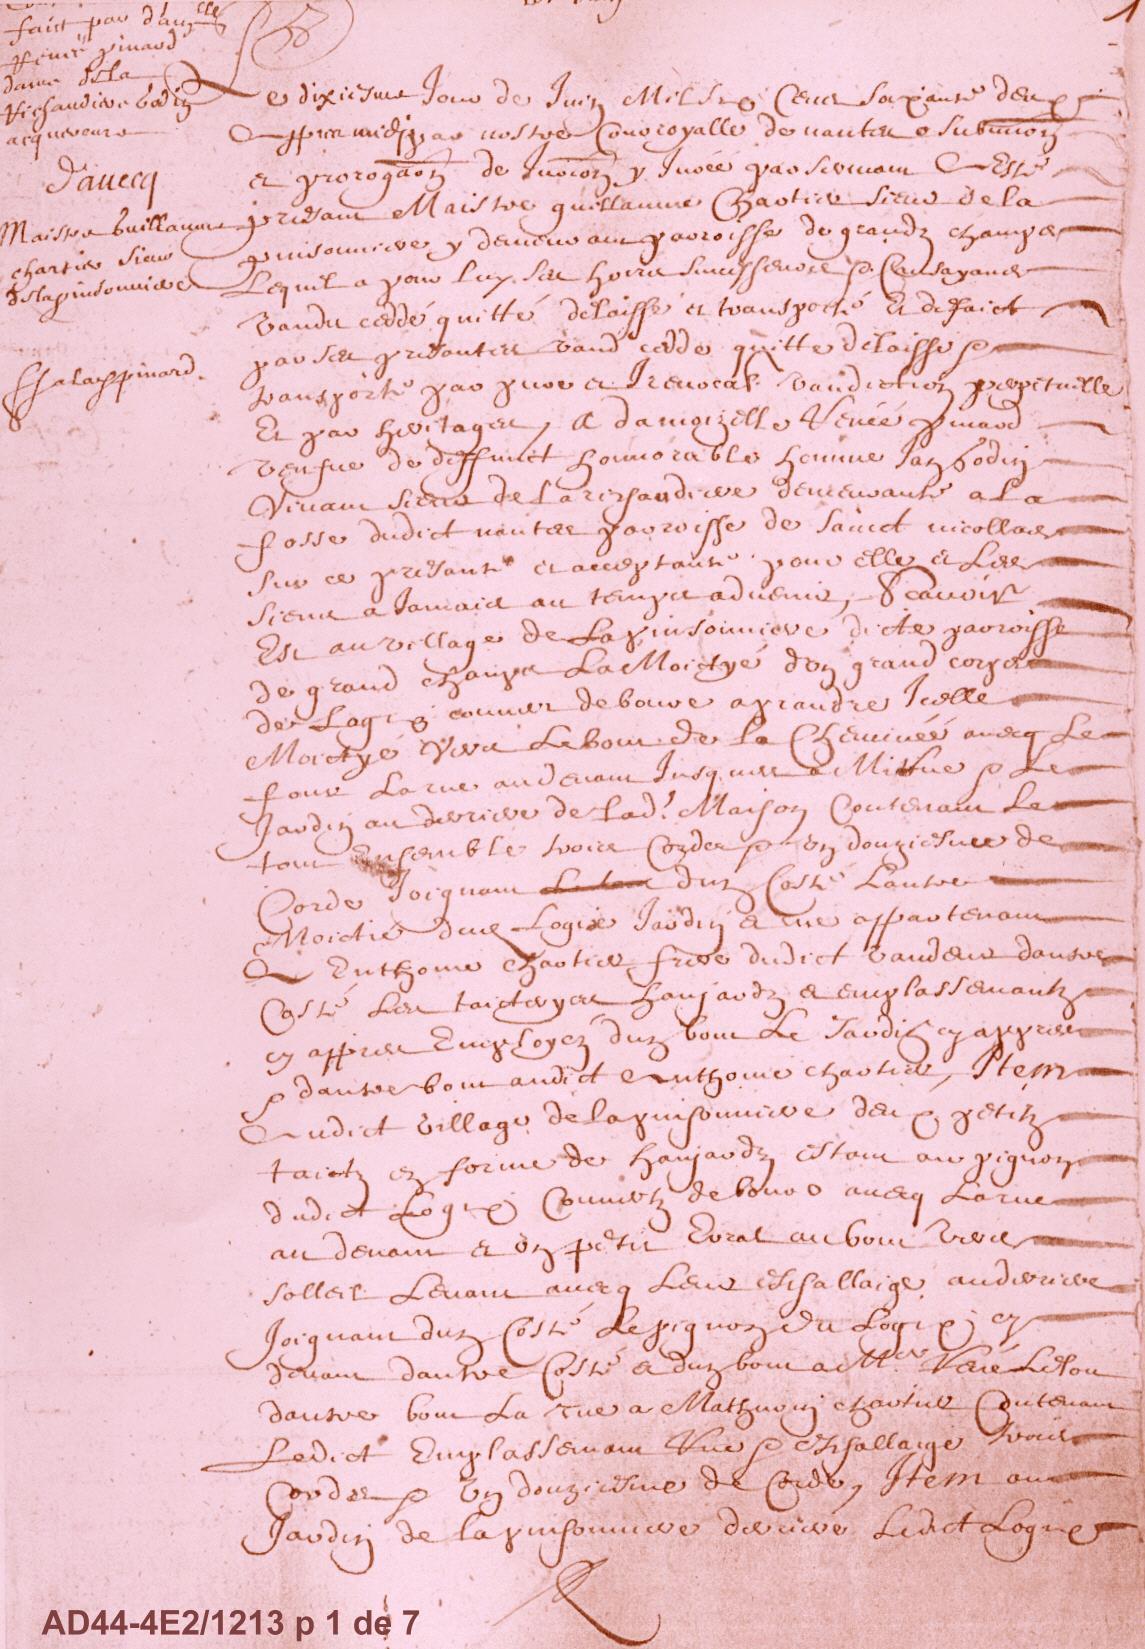 faict par dam.lle
Renée pinard
dame de la
Richaudiere bodin
acquereure
D'auecq
Maistre Guillaume
chartier sieur
de la pinsonniere
1
Le dixiesme Jour de Juin Mil Six Cens Soixante deux
appres midy par nostre Cour royalle de nantes o submission
et prorogaon de Juridicon y Juree par serment A Esté
presant Maistre guillaume Chartier sieur de la
pinsonniere y demeurant parroisse de grandz champs
Lequel a pour luy ses hoirs successeurs & Causayans
vandu ceddé quitté delaissé et transporté Et de faict
par ses presantes vand cedde quitte delaisse &
transporte par pure et Irevocal. vandiction perpetuelle
Et par heritages, A damoizelle Renée pinard
veufve de deffunct honnorable homme Jan bodin
vivant sieur de la richaudiere demeurante a la
fosse dudict nantes parroisse de sainct nicollas
sur ce presante et acceptante pour elle et Les
siens a Jamais au temps advenir, Scauoir
Est au village de La pinsonniere dicte parroisse
de grand champs La Moictyé d'un grand corps
de Logix couuert de bourre a prandre Icelle
Moictyé vers Le bout de la Cheminée auecq Le
four La rue au deuant Jusques a Mi Rue & Le
Jardin au derriere de lad. Maison Contenant Le
tout Ensemble trois Cordes & un douziesme de
Corde Joignant d'un Costé L'autre
Moictié dud Logix Jardin et rue appartenant
A Enthoine chartier frere dudict vandeur d'autre
Costé Les taictz es hanjardz et emplassemantz
cy appres Employez d'un bout Le Jardin cy appres
& d'autre bout audict Anthoine chartier, Item
Audict village de la pinsonniere deux petitz
taictz en forme de hanjardz estant au pignon
dudict Logix Couuertz de bourre auecq La rue
au deuant et un petit Coral au bout vers
solleil Leuant auecq Leur eschallaige au derriere
Joignant d'un Costé Le pignon du Logix cy
deuant d'autre Costé et d'un bout a Me René Litou
d'autre bout La rue a Mathurin chartier Contenant
Ledict Emplassemant Rue & eschallaige trois
Cordes & un douziesme de Corde, Item au
Jardin de la pinsonniere derriere Ledict Logix
AD44-4E2/1213 p 1 de 7